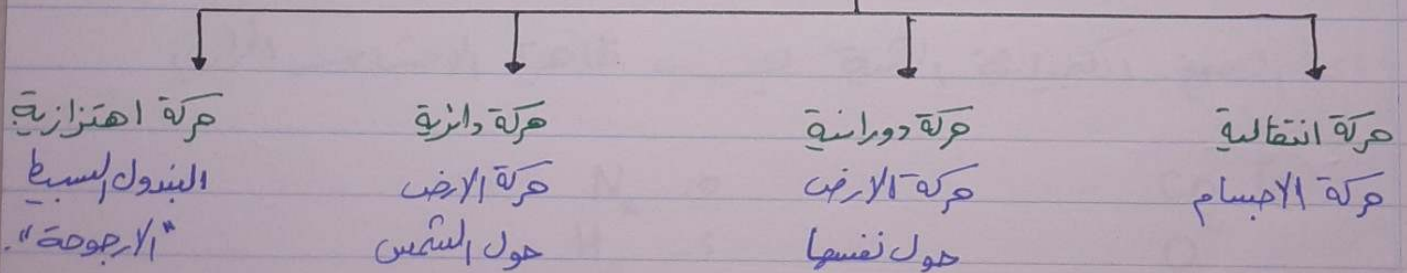 حركة انتقالية
حركة الاجسام
حركة دورانية
حركة الارض
حول نفسها
حركة دائرية
حركة الارض
حول الشمس
حركة اهتزازية
البندول البسيط
"الارجوحة".